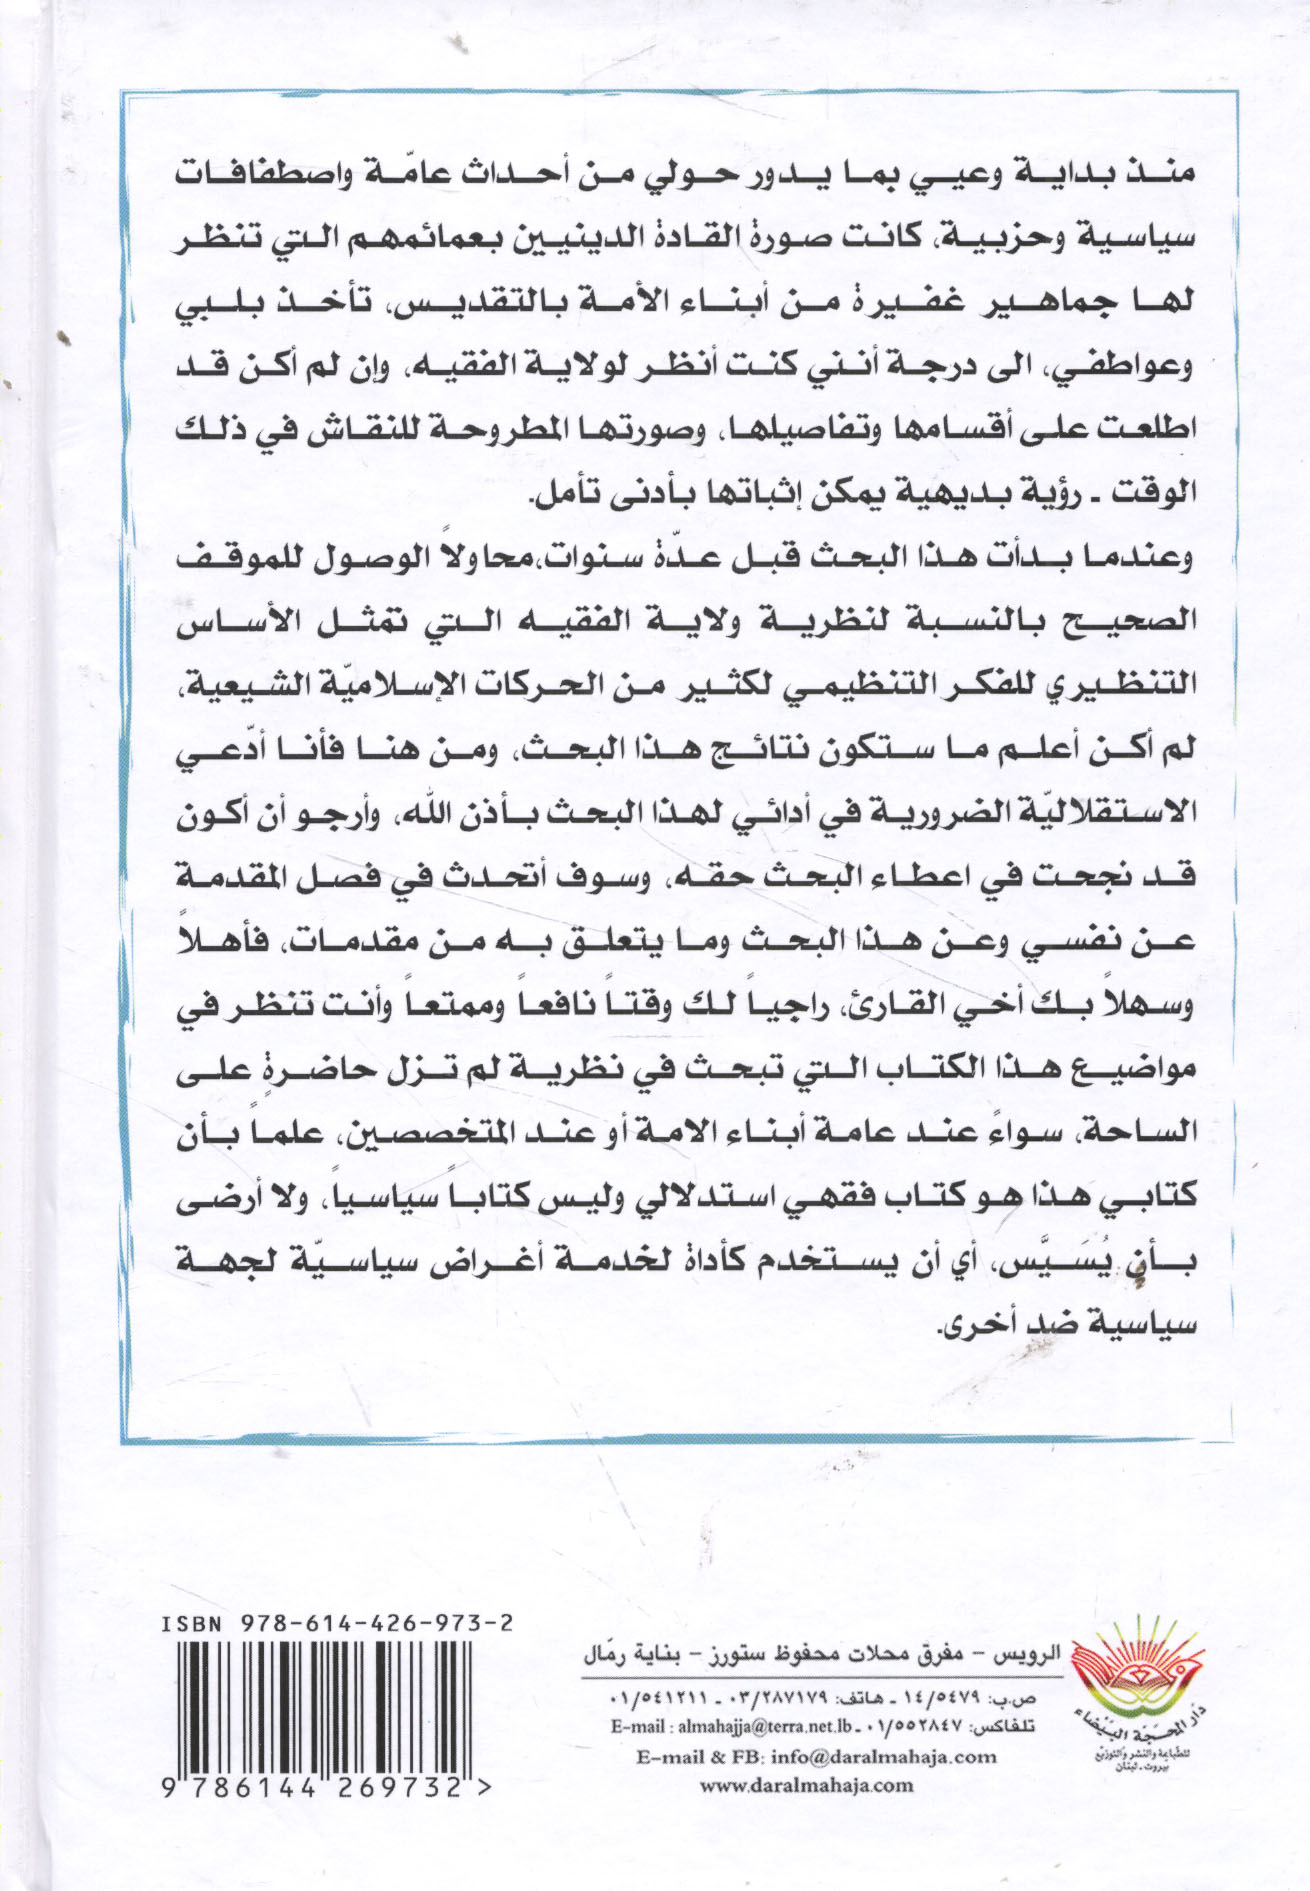 منذ بداية وعيي بما يدور حولي من أحداث عامّة واصطفافات
سياسية وحزبية، كانت صورة القادة الدينيين بعمائمهم التي تنظر
لها جماهير غفيرة من أبناء الأمة بالتقديس، تأخذ بلبي
وعواطفي، الى درجة أنني كنت أنظر لولاية الفقيه، وإن لم أكن قد
اطلعت على أقسامها وتفاصيلها، وصورتها المطروحة للنقاش في ذلك
الوقت - رؤية بديهية يمكن إثباتها بأدنى تأمل.
وعندما بدأت هذا البحث قبل عدّة سنوات،محاولاً الوصول للموقف
الصحيح بالنسبة لنظرية ولاية الفقيه التي تمثل الأساس
التنظيري للفكر التنظيمي لكثير من الحركات الإسلاميّة الشيعية،
لم أكن أعلم ما ستكون نتائج هذا البحث، ومن هنا فأنا أدّعي
الاستقلاليّة الضرورية في أدائي لهذا البحث بأذن الله، وأرجو أن أكون
قد نجحت في اعطاء البحث حقه، وسوف أتحدث في فصل المقدمة
عن نفسي وعن هذا البحث وما يتعلق به من مقدمات، فأهلاً
وسهلاً بك أخي القارئ، راجياً لك وقتاً نافعاً وممتعاً وأنت تنظر في
مواضيع هذا الكتاب التي تبحث في نظرية لم تزل حاضرةٍ على
الساحة، سواءً عند عامة أبناء الامة أو عند المتخصصين، علماً بأن
كتابي هذا هو كتاب فقهي استدلالي وليس كتاباً سياسياً، ولا أرضى
بأن يُسَيَّس، أي أن يستخدم كأداة لخدمة أغراض سياسيّة لجهة
سياسية ضد أخرى.
ISBN 978-614-426-973-2
9 786144 269732 >
الرويس - مفرق محلات محفوظ ستورز - بناية رمّال
ص.ب: ١٤/٥٤٧٩ - هاتف: ٠٣/٢٨٧١٧٩ - ٠١/٥٤١٢١١
تلفاكس: ٠١/٥٥٢٨٤٧ - E-mail : almahajja@terra.net.lb
E-mail & FB: info@daralmahaja.com
www.daralmahaja.com
دار المحجّة البيضاء
للطباعة والنشر والتوزيع
بيروت - لبنان